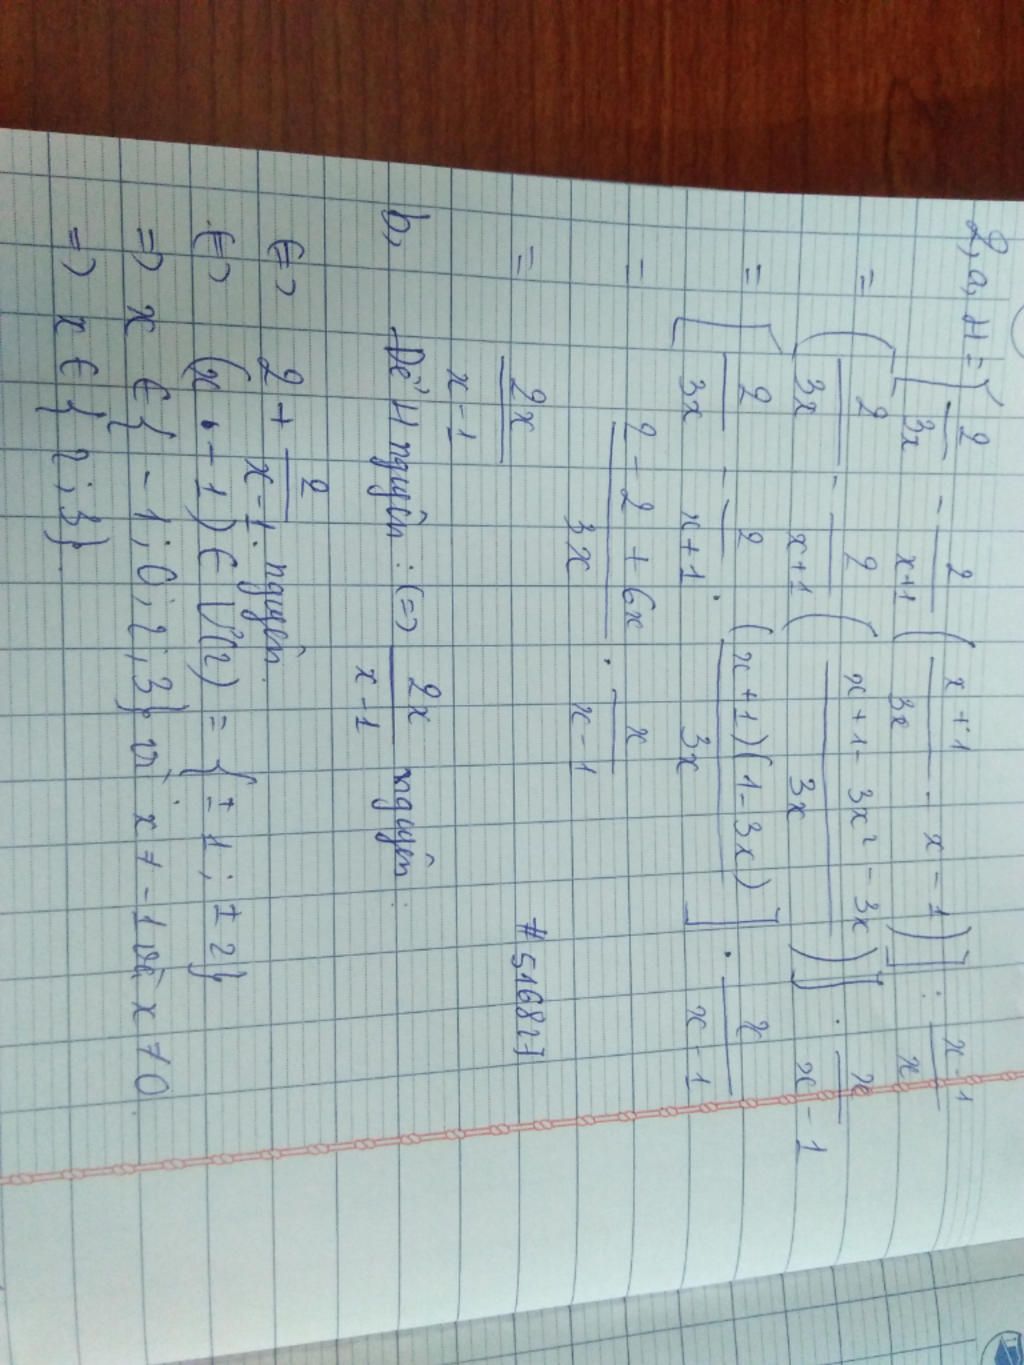 2, a, H = [ 2/3x - 2/x+1 ( x+1/3x - x - 1 ) ] : x-1/x
= [ 2/3x - 2/x+1 ( x+1 - 3x² - 3x / 3x ) ] . x/x-1
= [ 2/3x - 2/x+1 . (x+1)(1-3x)/3x ] . x/x-1
= 2-2+6x/3x . x/x-1
= 2x/x-1
#516827
b, Để H nguyên : <=> 2x/x-1 nguyên
<=> 2 + 2/x-1 nguyên.
<=> (x - 1) ∈ Ư(2) = { ±1 ; ±2}
=> x ∈ { -1 ; 0 ; 2 ; 3} vì x ≠ -1 và x ≠ 0
=> x ∈ { 2 ; 3}